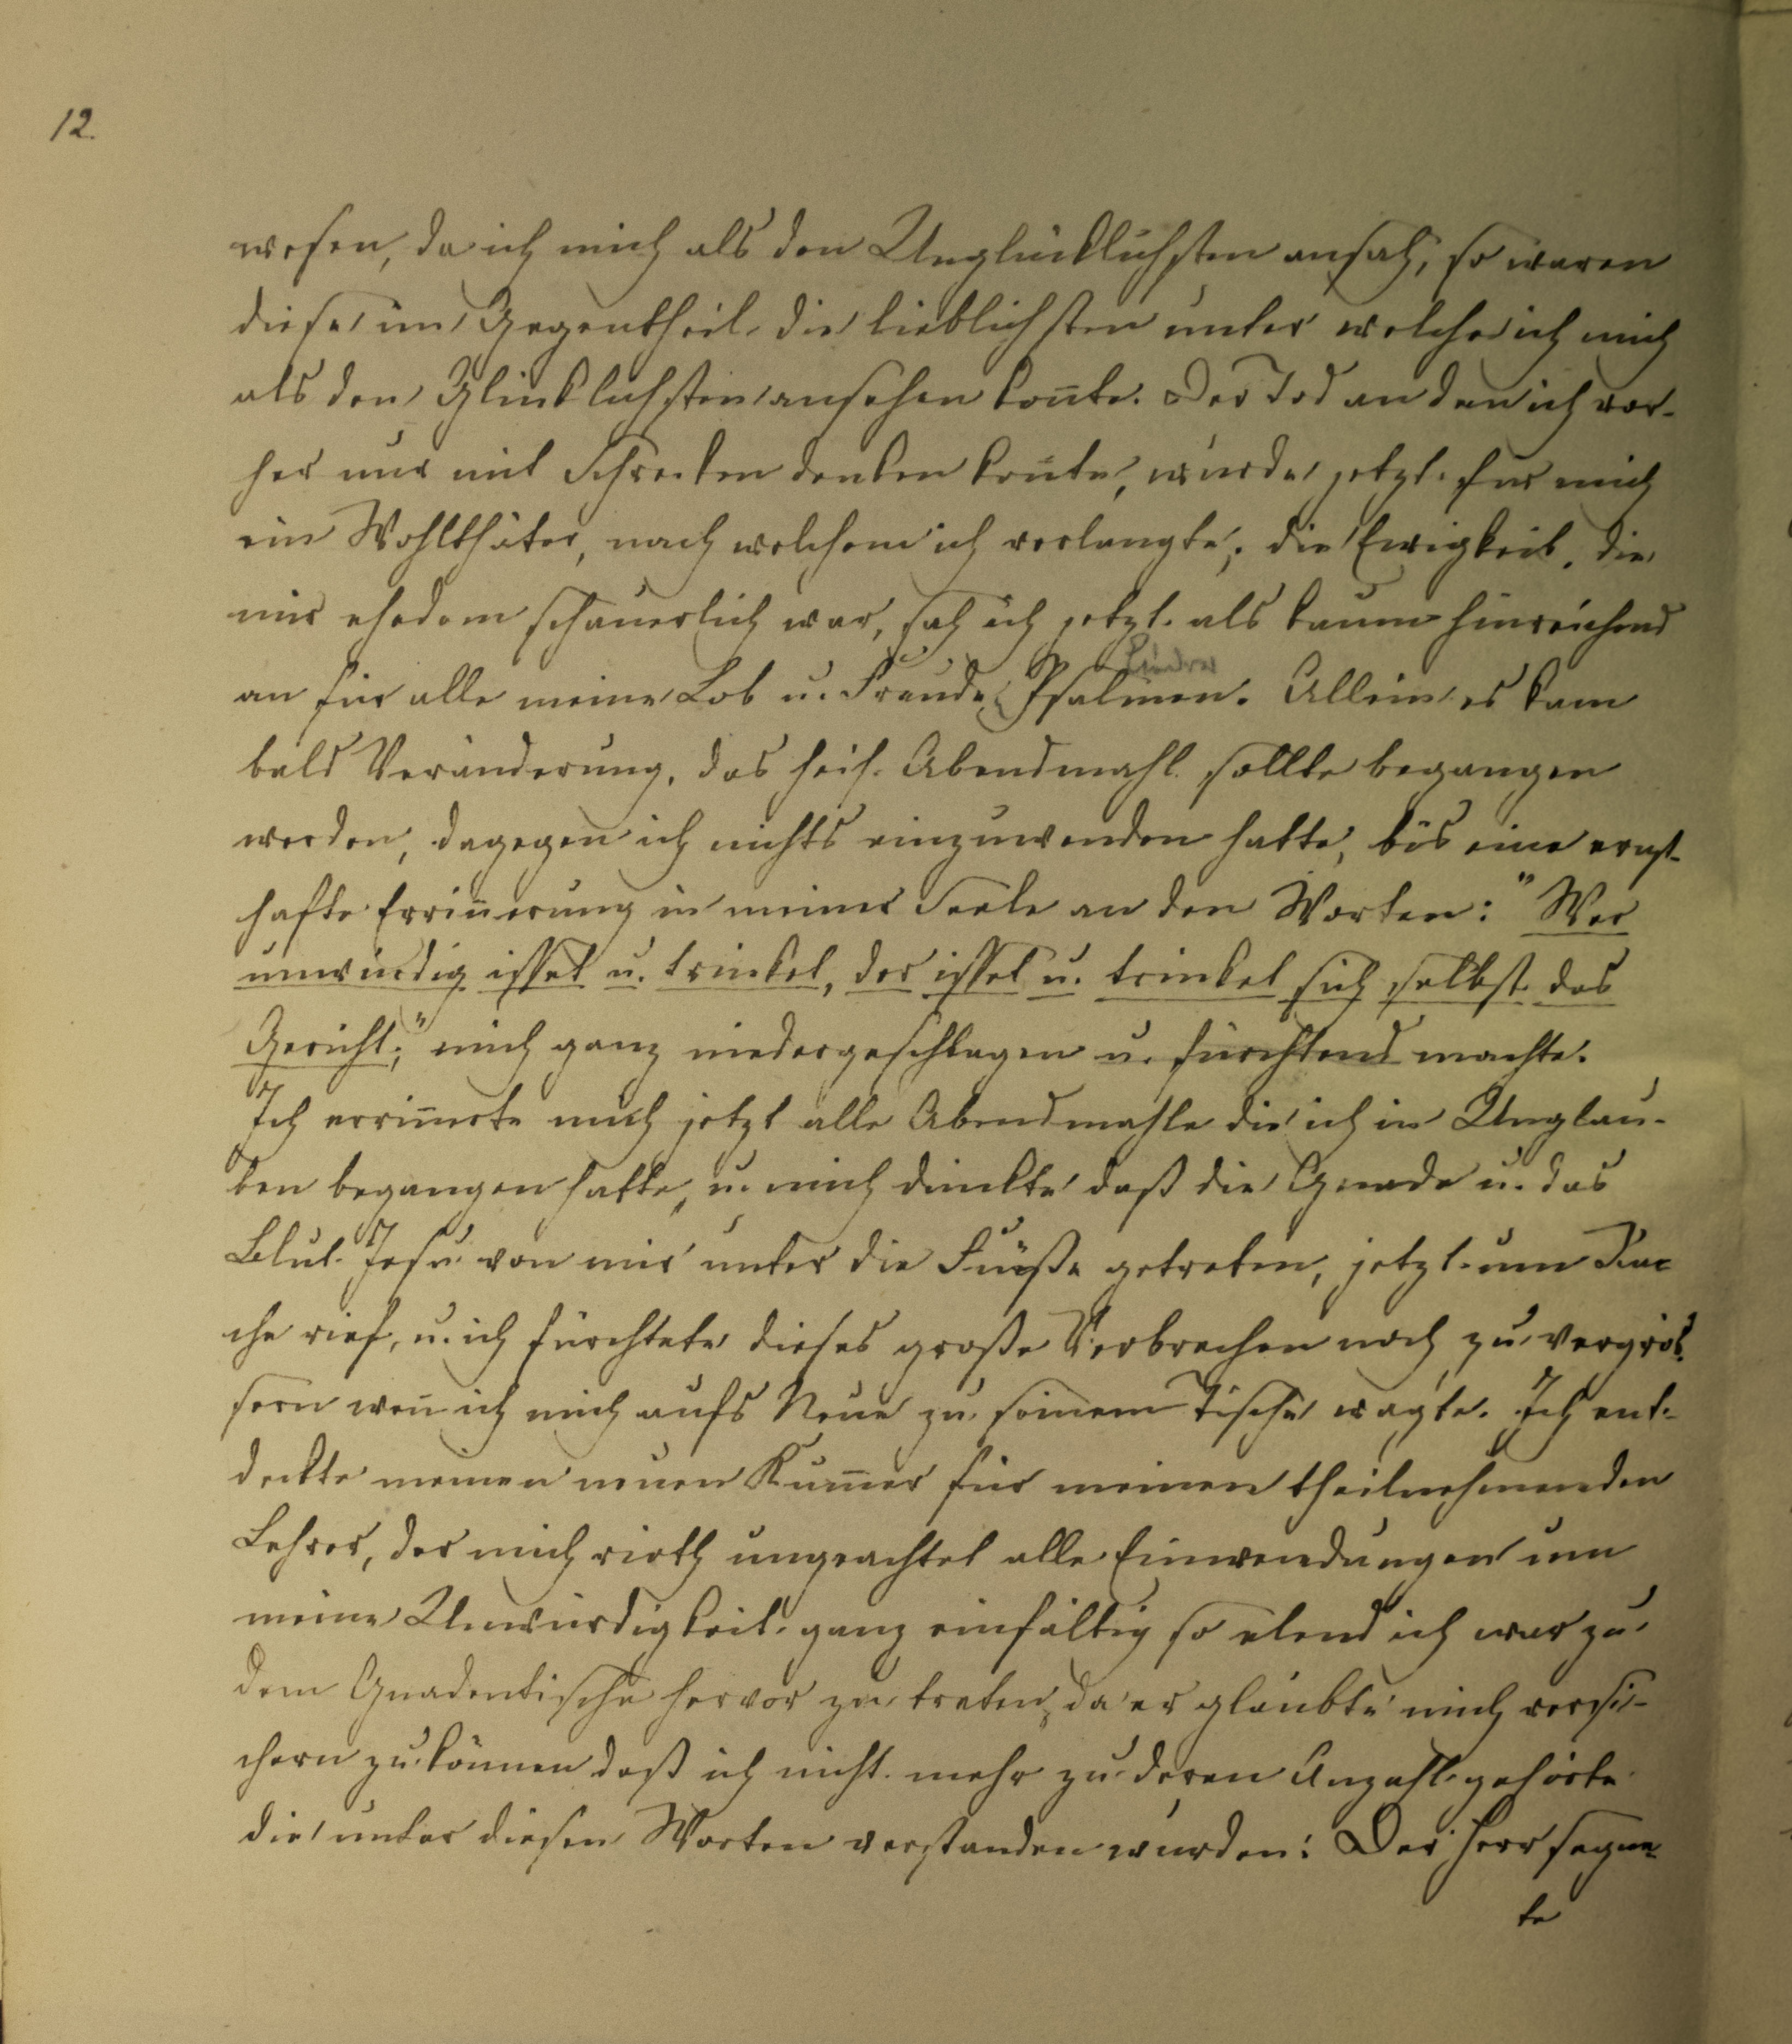 12.
wesen, da ich mich als den Unglücklichsten ansah, so waren
diese im Gegentheil die lieblichsten unter welche ich mich
als den Glücklichsten ansehen kon̄te. Der Tod an den ich vor-
her nur mit Schrecken denken kon̄te, wurde jetzt für mich
ein Wohlthäter, nach welchem ich verlangte; die Ewigkeit, die
mir ehedem schauerlich war, sah ich jetzt als kaum hinreichend
an für alle meine Lob u. Freude Psalmen. Allein es kam
bald Veränderung, das heil. Abendmahl sollte begangen
werden, dagegen ich nichts einzuwenden hatte, bis eine ernst-
hafte Errin̄erung in meiner Seele an den Worten: "Wer
unwürdig isset u. trinket, der isset u. trinket sich selbst das
Gericht;" mich ganz niedergeschlagen u. fürchtend machte.
Ich errin̄erte mich jetzt alle Abendmahle die ich in Unglau-
ben begangen hatte, u. mich dünkte daß die Gnade u. das
Blut Jesu von mir unter die Füße getreten, jetzt um Ra-
che rief, u. ich fürchtete dieses große Verbrechen noch zu vergrös-
sern wen̄ ich mich aufs Neue zu seinem Tische wagte. Ich ent-
deckte meinen neuen Kum̄er für meinen theilnehmenden
Lehrer, der mich rieth ungeachtet alle Einwendungen um
meine Unwürdigkeit ganz einfältig so elend ich war zu
dem Gnadentische hervor zu treten, da er glaubte mich versi-
chern zu können daß ich nicht mehr zu deren Anzahl gehörte
die unter diesen Worten verstanden wurden: Der Herr segne-
te